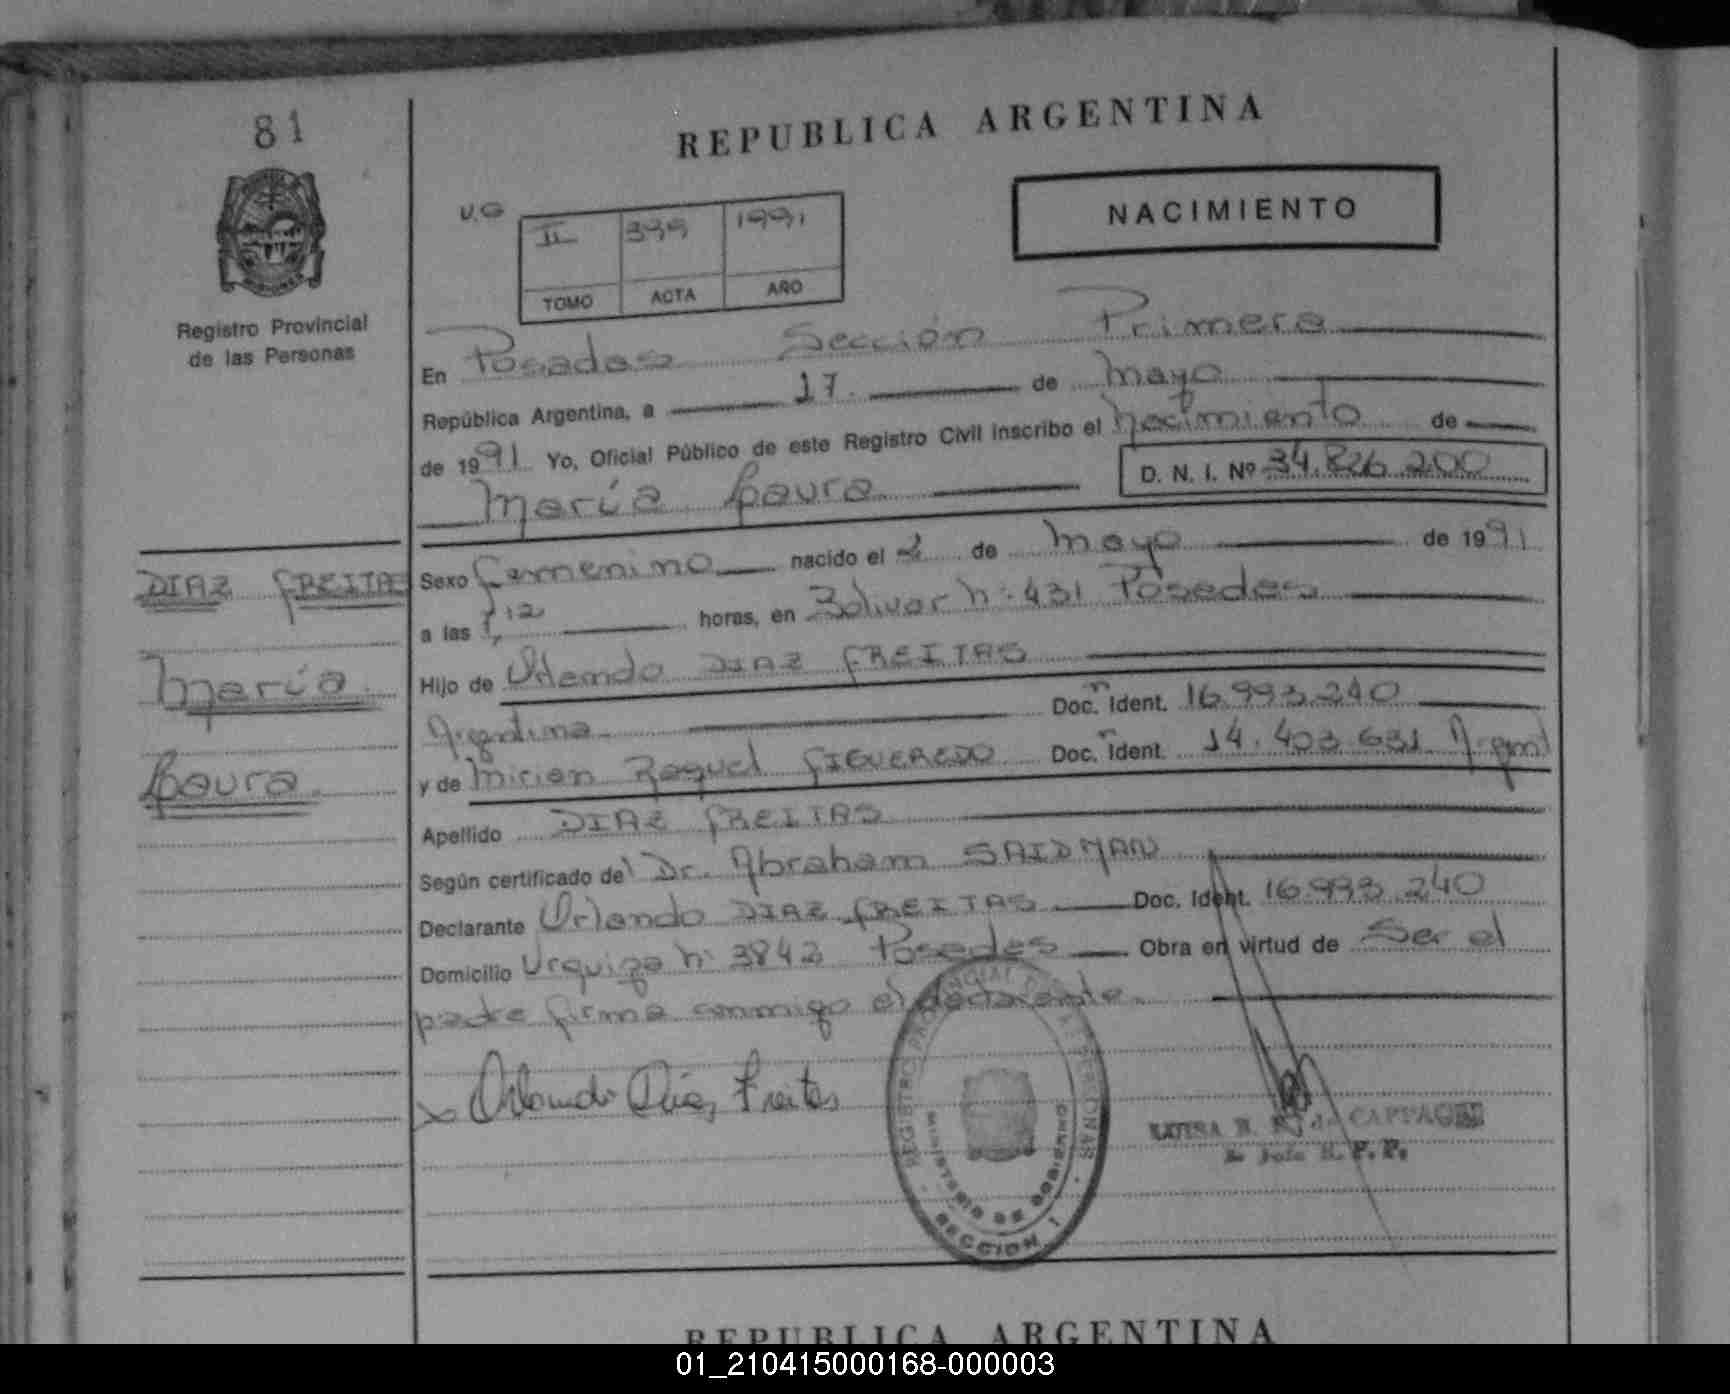 81
REPUBLICA ARGENTINA
Registro Provincial
de las Personas
NACIMIENTO
V.G
II 399 1991
TOMO ACTA AÑO
En Posadas Sección Primera
República Argentina, a 17 de Mayo
de 1991 Yo, Oficial Público de este Registro Civil inscribo el nacimiento de
María Laura D. N. I. Nº 34.826.200
DIAZ FREITAS
María
Laura
Sexo femenino nacido el 2 de Mayo de 1991
a las 12 horas, en Bolivar nº 431 Posadas
Hijo de Orlando DIAZ FREITAS
Argentina Doc. Ident. 16.993.240
y de Mirian Raquel FIGUEREDO Doc. Ident. 14.403.631 Argent
Apellido DIAZ FREITAS
Según certificado del Dr. Abraham SAIDMAN
Declarante Orlando DIAZ FREITAS Doc. Ident. 16.993.240
Domicilio Urquiza nº 3842 Posadas Obra en virtud de Ser el
padre firma conmigo el declarante.
x Orlando Díaz Freitas
REGISTRO PROVINCIAL DE LAS PERSONAS
MINISTERIO DE GOBIERNO
SECCION 1
de CAPPA
R. P. P.
REPUBLICA ARGENTINA
01_210415000168-000003